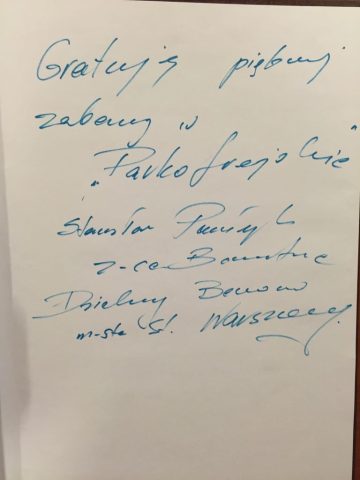 Gratuluję pięknej
zabawy w
„Parkofrajdzie”
Stanisław
z-ca Burmistrza
Dzielnicy Bemowo
m-sta St. Warszawy.